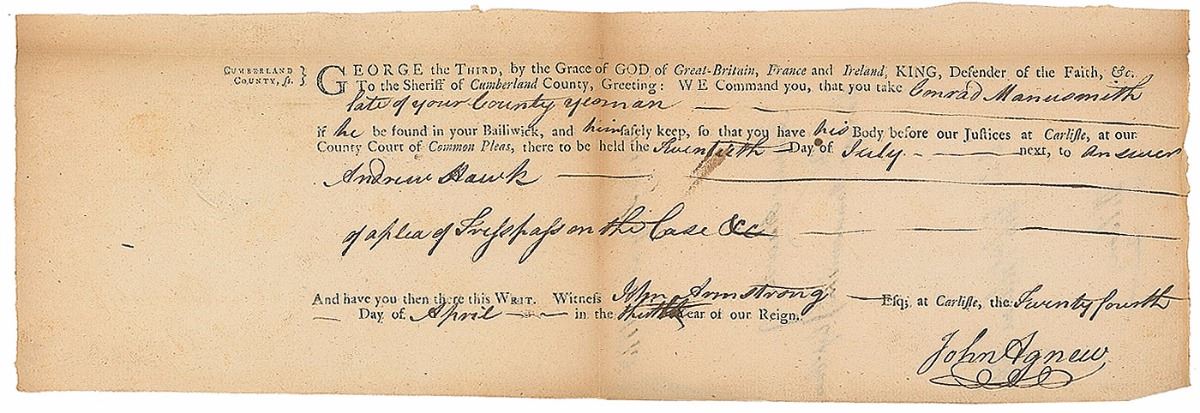 CUMBERLAND COUNTY, ſs. } GEORGE the THIRD, by the Grace of GOD of Great-Britain, France and Ireland, KING, Defender of the Faith, &c.
To the Sheriff of Cumberland County, Greeting: WE Command you, that you take Conrad Manusmith
late of your County yeoman
if he be found in your Bailiwick, and him ſafely keep, ſo that you have his Body before our Juſtices at Carliſle, at our
County Court of Common Pleas, there to be held the Twentieth Day of July next, to answer
Andrew Hawk
of a plea of Treſspaſs on the Case &c
And have you then there this WRIT. Witneſs John Armstrong Eſq; at Carliſle, the Twenty fourth
Day of April in the Year of our Reign.
John Agnew